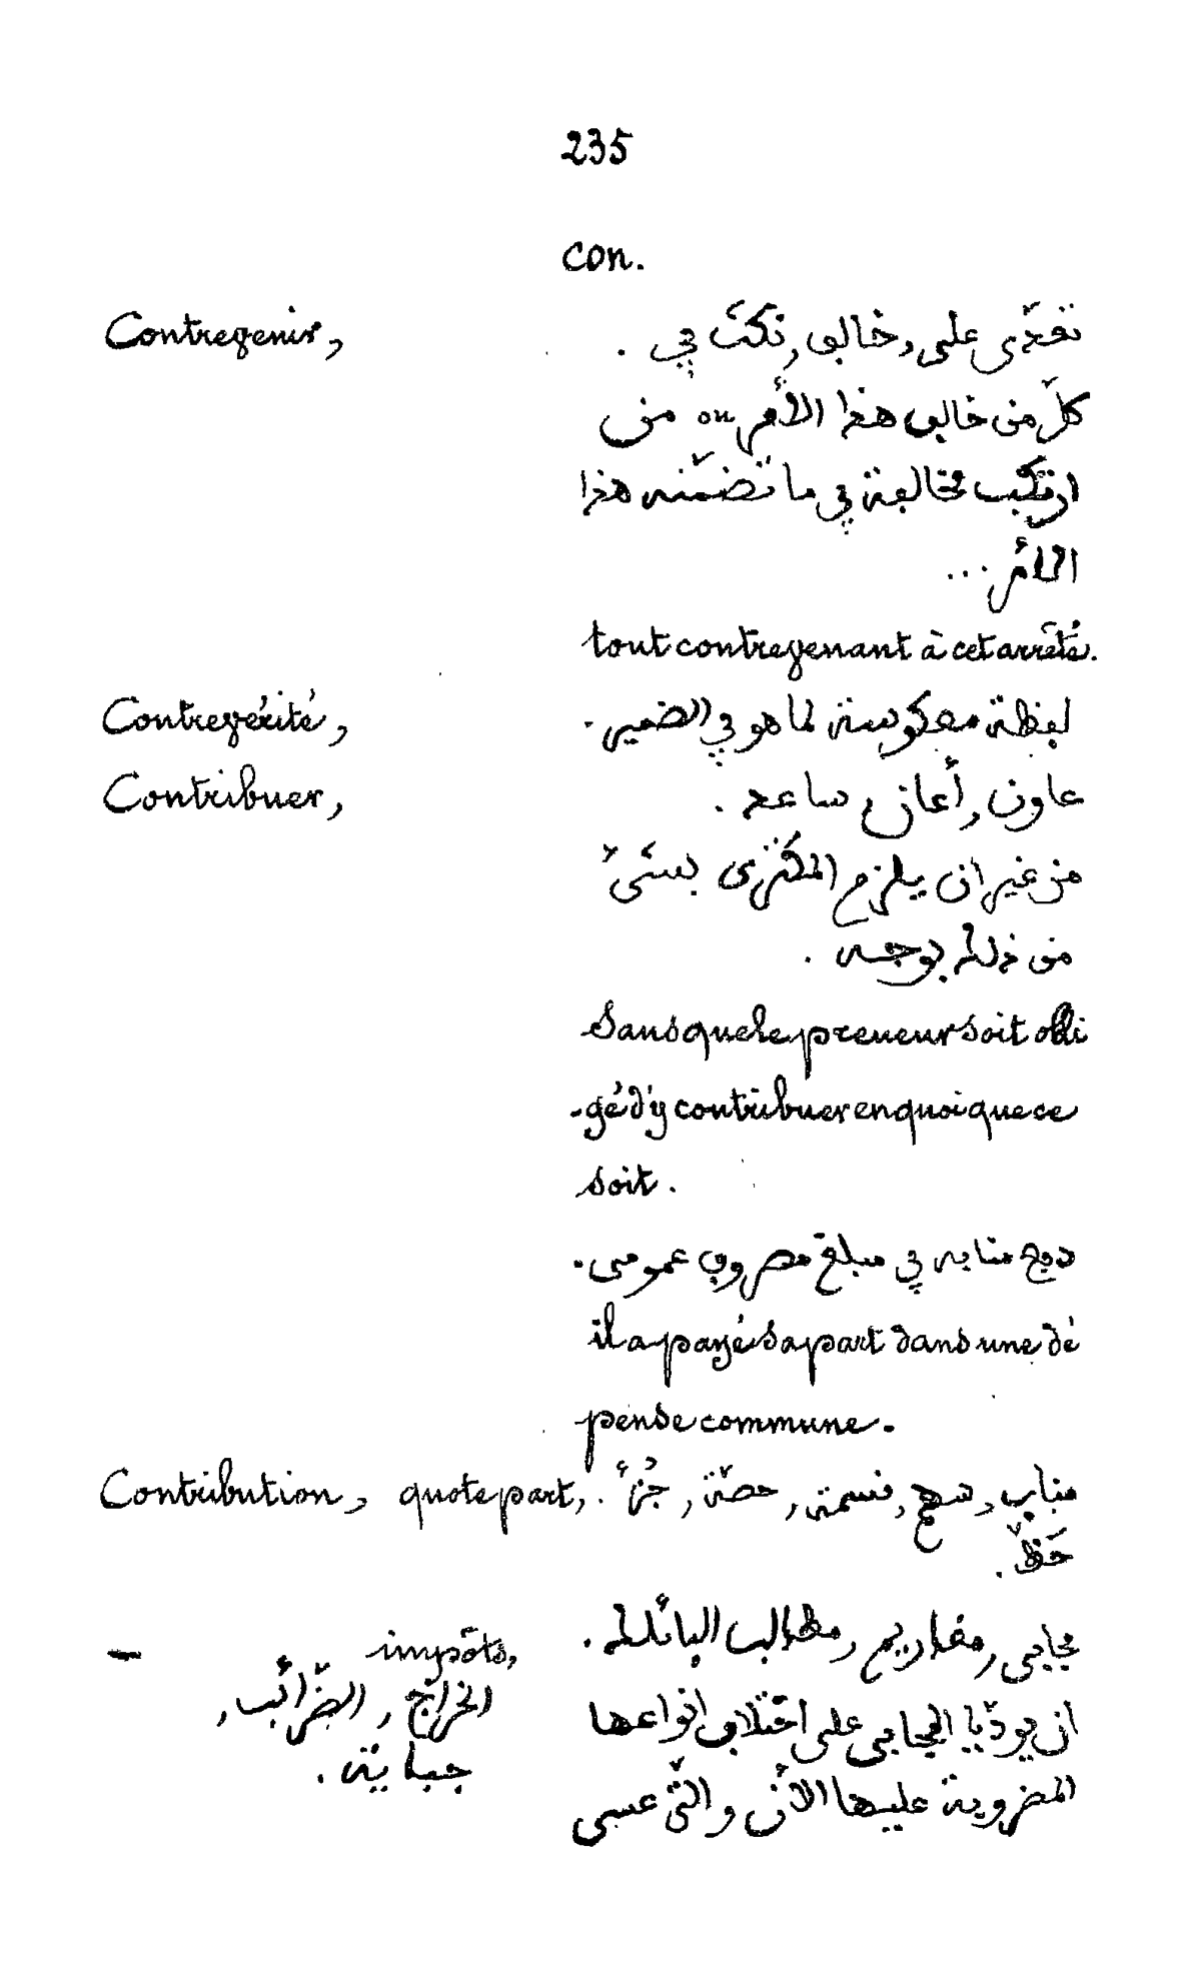 235
con.
Contrevenir, تعدّى على, خالف, نكث في .
كلّ من خالف هذا الأمر ou من
ارتكب مخالفة في ما تضمّنه هذا
الأمر ...
tout contrevenant à cet arrêté.
Contrevérité, لفظة معكوسة لما هو في الضمير .
Contribuer, عاون, أعان, ساعد .
من غير ان يلزم المكتري بشيء
من ذلك بوجه .
Sans que le preneur soit obli
-gé d'y contribuer en quoi que ce
soit.
دفع منابه في مبلغ مصروف عمومي .
il a payé sa part dans une dé
pense commune.
Contribution, quote part, مناب, سهم, قسمة, حصّة, جُزء .
حَظّ .
— impôts, مجابي, مغاريم, مطالب البائلك .
الخراج, الضّرائب,
جباية .
ان يودّيا المجابي على اختلاف انواعها
المضروبة عليها الأن والتّي عسى